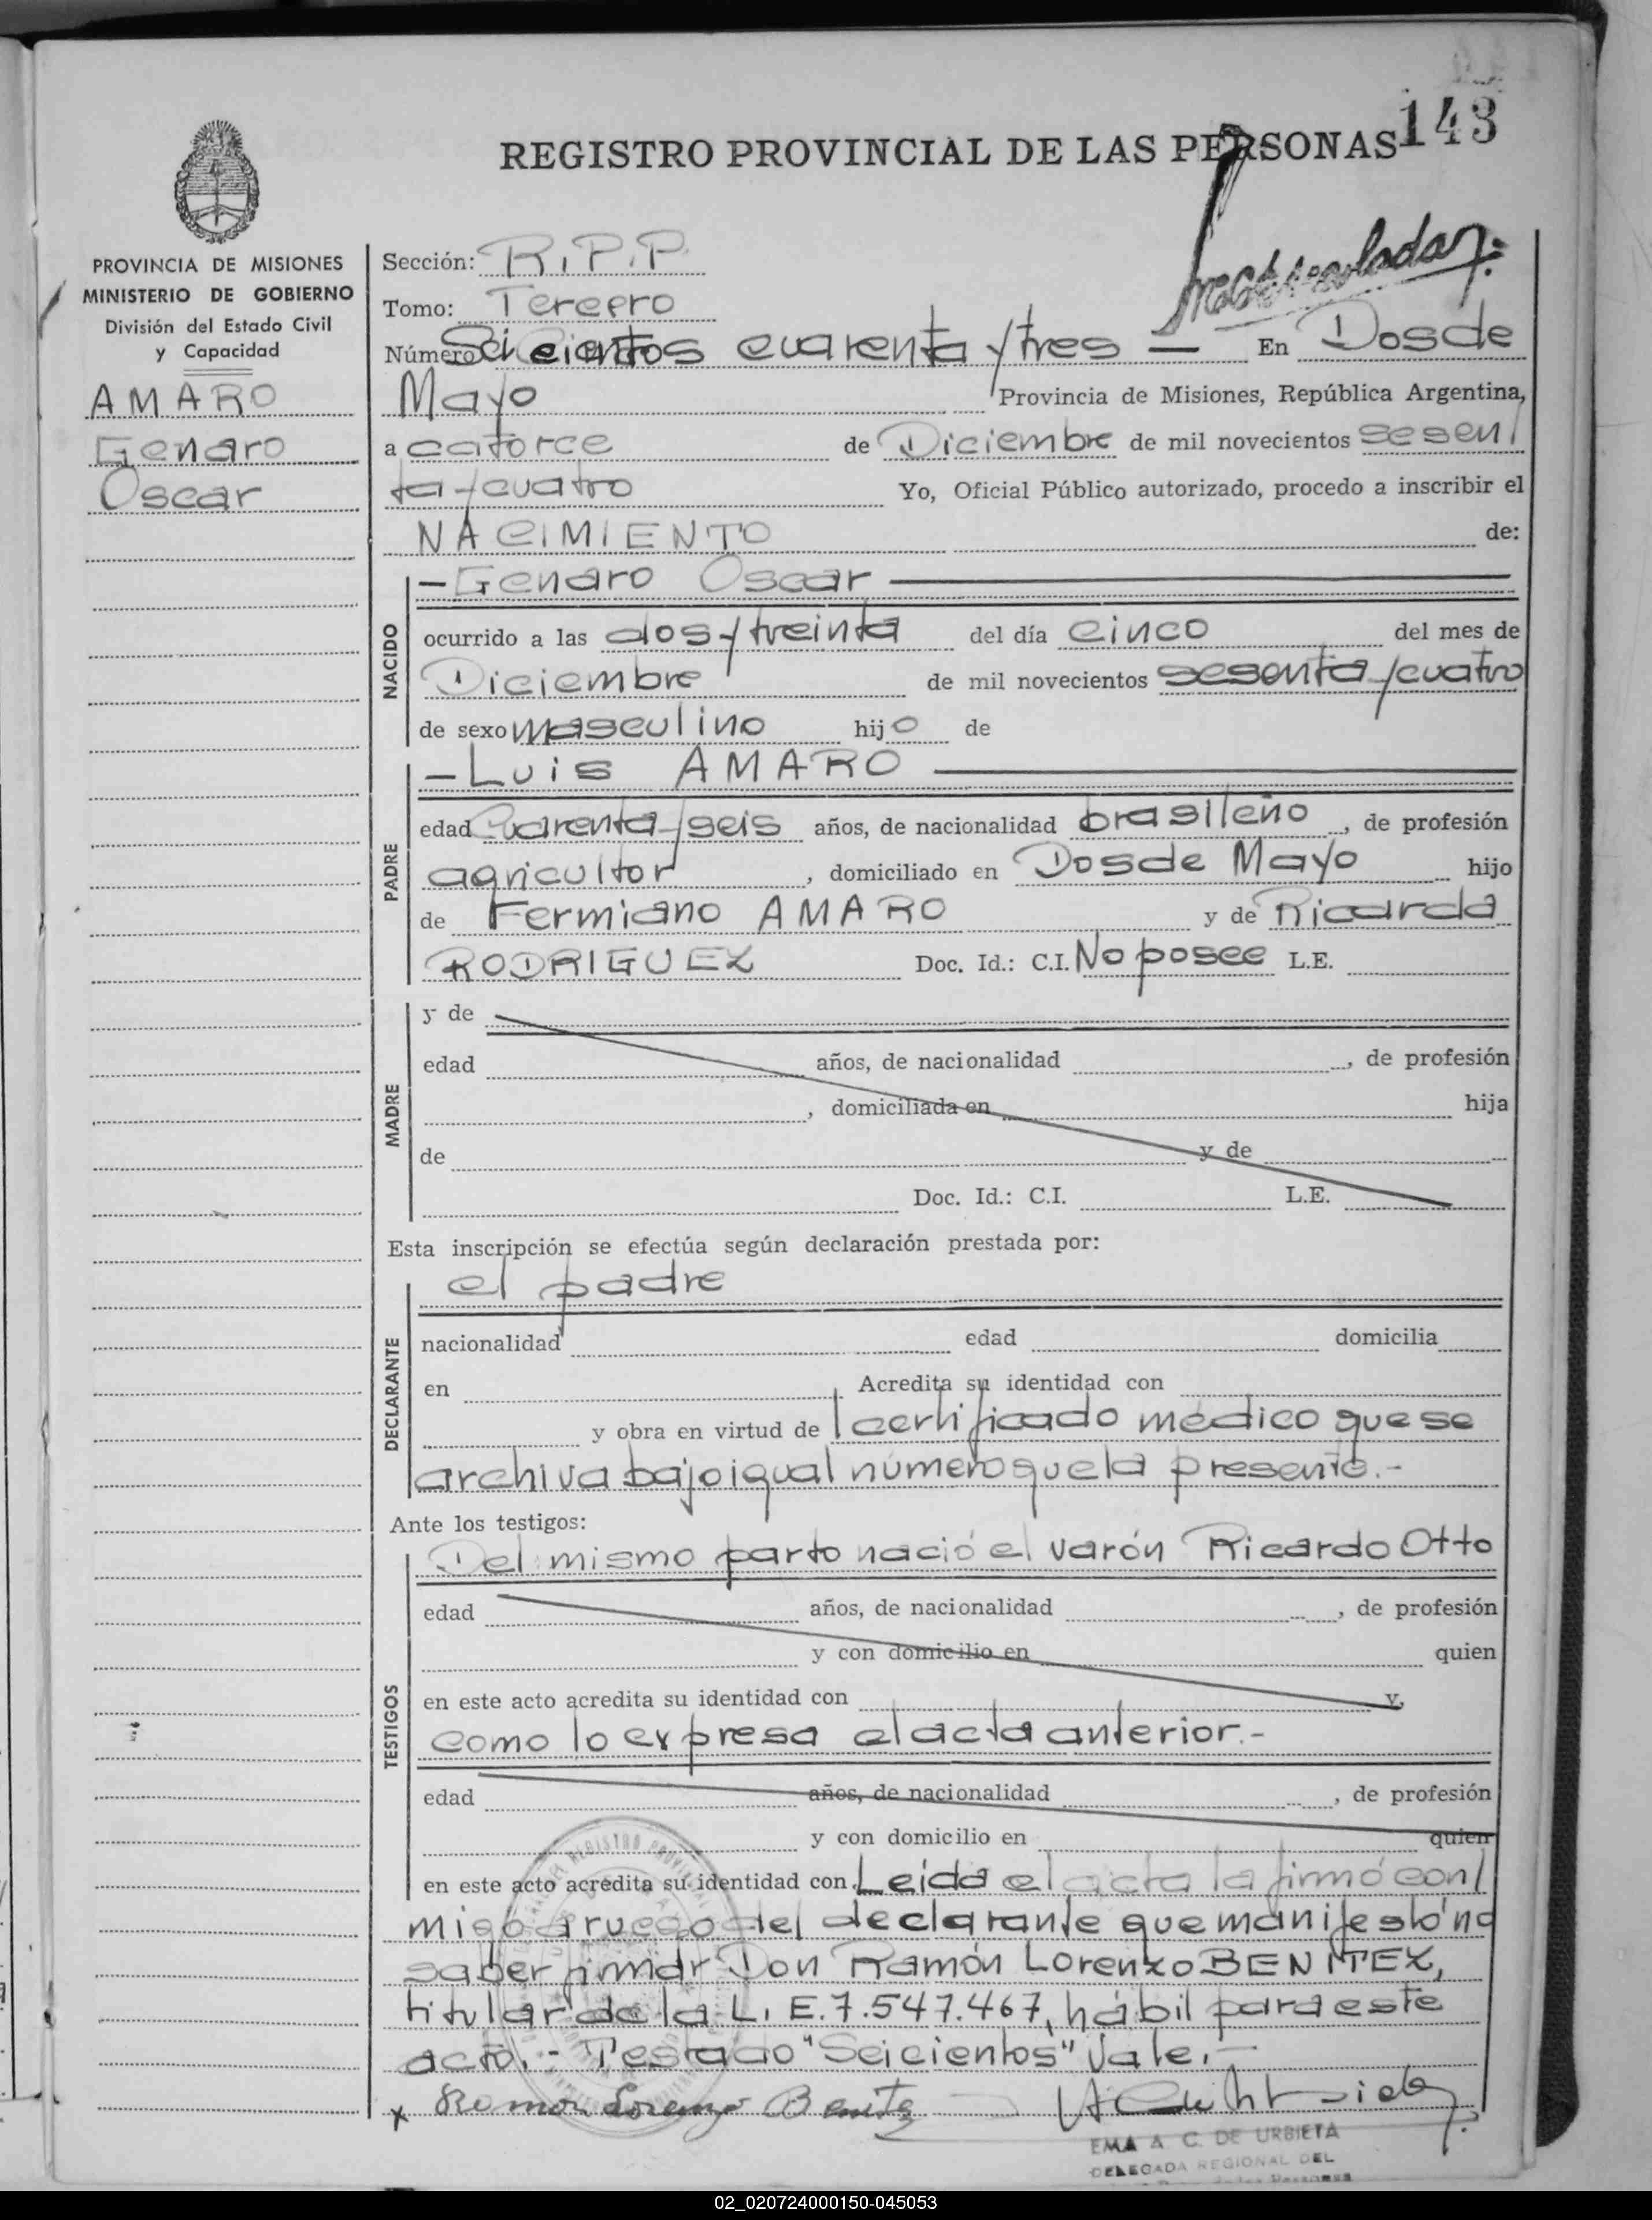 143
REGISTRO PROVINCIAL DE LAS PERSONAS
PROVINCIA DE MISIONES
MINISTERIO DE GOBIERNO
División del Estado Civil
y Capacidad
AMARO
Genaro
Oscar
Sección: R.P.P.
Tomo: Tercero
Número Seicientos cuarenta y tres — En Dos de
Mayo Provincia de Misiones, República Argentina,
a catorce de Diciembre de mil novecientos sesen/
ta y cuatro Yo, Oficial Público autorizado, procedo a inscribir el
NACIMIENTO de:
NACIDO
— Genaro Oscar —
ocurrido a las dos y treinta del día cinco del mes de
Diciembre de mil novecientos sesenta y cuatro
de sexo masculino hijo de
PADRE
— Luis AMARO —
edad Cuarenta y seis años, de nacionalidad brasileño, de profesión
agricultor, domiciliado en Dos de Mayo hijo
de Fermiano AMARO y de Ricarda
RODRIGUEZ Doc. Id.: C.I. No posee L.E.
MADRE
y de
edad años, de nacionalidad , de profesión
, domiciliada en hija
de y de
Doc. Id.: C.I. L.E.
Esta inscripción se efectúa según declaración prestada por:
DECLARANTE
el padre
nacionalidad edad domicilia
en Acredita su identidad con
y obra en virtud de l certificado médico que se
archiva bajo igual número que la presente.-
Ante los testigos:
TESTIGOS
Del mismo parto nació el varón Ricardo Otto
edad años, de nacionalidad , de profesión
y con domicilio en quien
en este acto acredita su identidad con y,
como lo expresa el acta anterior.-
edad años, de nacionalidad , de profesión
y con domicilio en quien
en este acto acredita su identidad con Leída el acta la firmó con/
migo a ruego del declarante que manifestó no
saber firmar Don Ramón Lorenzo BENITEZ,
titular de la L.E.7.547.467, hábil para este
acto.- Testado "Seicientos" Vale.-
x Ramon Lorenzo Benitez
EMA A. C. DE URBIETA
DELEGADA REGIONAL DEL
02_020724000150-045053